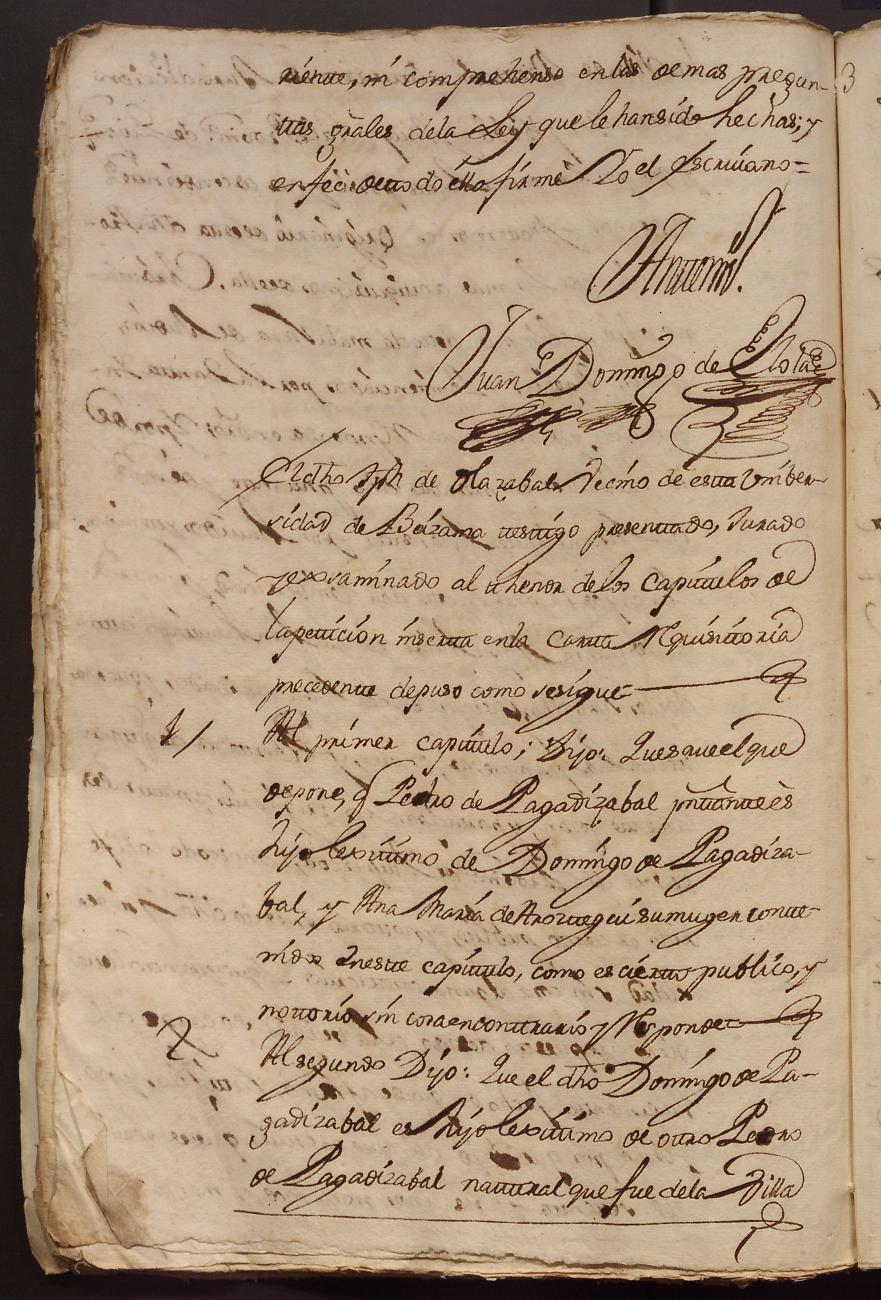 riente, ni comprehenso en las demas pregun-
tas grãles dela Ley que le han sido hechas; y
en fee de todo ello firmè Yo el Escriuano=
Antemi.
Juan Domingo de
El dho Jph de Olazabal Vecino de esta Vniber-
sidad de Beizama testigo presentado, Jurado
y exsaminado al thenor de los capitulos de
la peticion inserta en la Carta Requisitoria
precedente depuso como se sigue
1/ Al primer capitulo; Dijo: Que saue el que
depone, q̃ Pedro de Pagadizabal pñtante ès
hijo lexitimo de Domingo de Pagadiza-
bal, y Ana Maria de Aroztegui su muger conte-
nidos en este capitulo, como es cierto publico, y
nottorio sin cosa en contrario y Responde
2 Al segundo Dijo: Que el dho Domingo de Pa-
gadizabal es hijo lexitimo de otro Pedro
de Pagadizabal natural que fue de la Villa
3